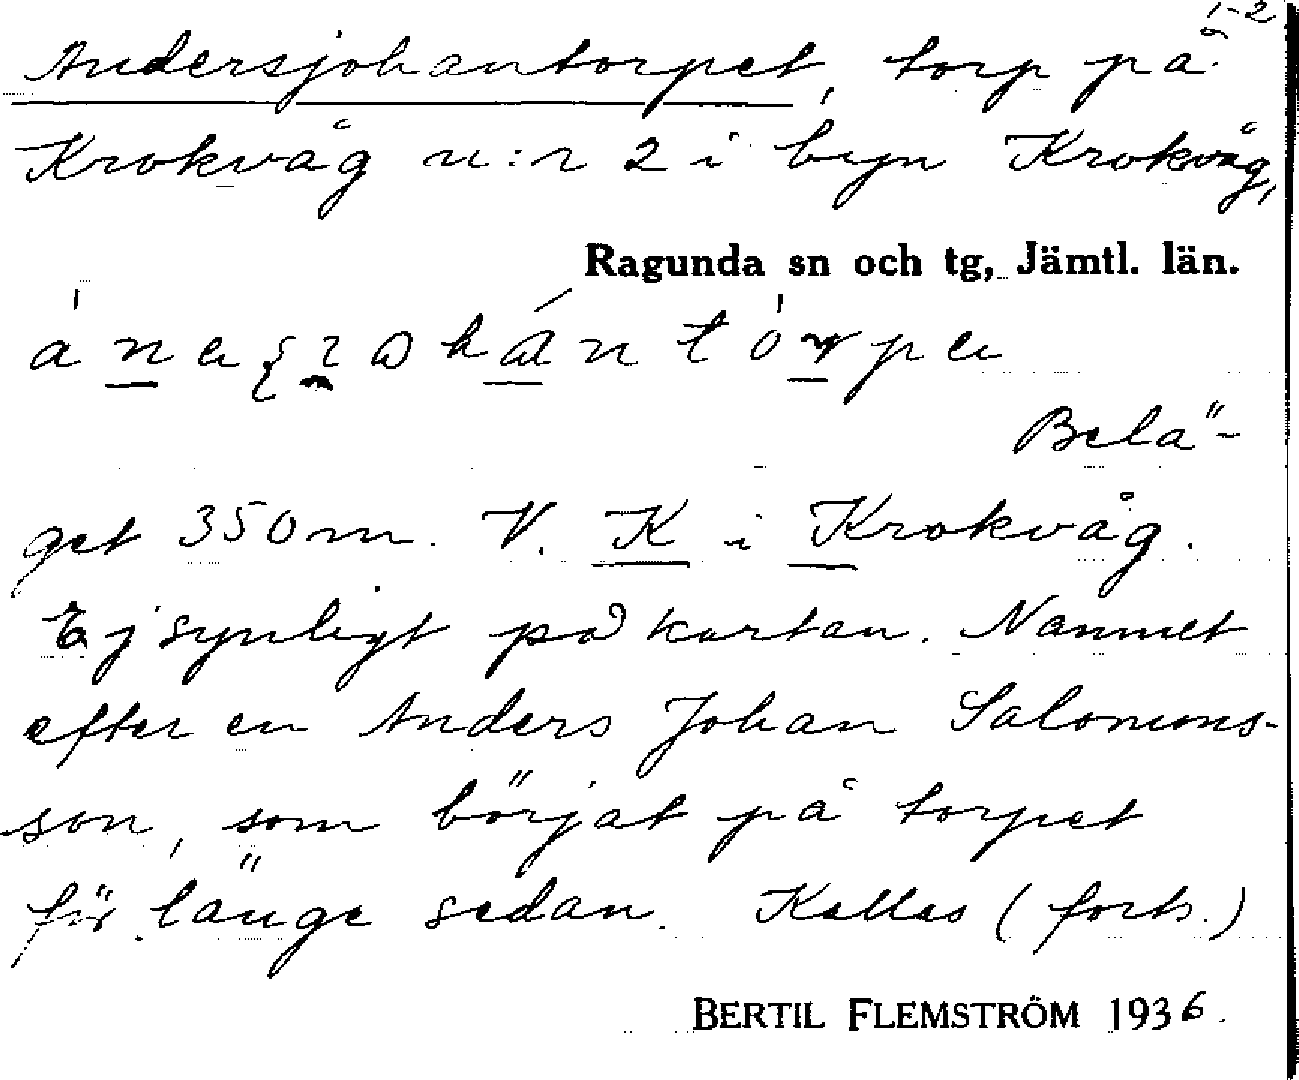 1-2
Andersjohantorpet, torp på
Krokvåg n:r 2 i byn Krokvåg,
Ragunda sn och tg, Jämtl. län.
Belä-
get 350 m. V. K i Krokvåg.
Ej synligt på kartan. Namnet
efter en Anders Johan Salomons-
son, som börjat på torpet
för länge sedan. Kallas (forts.)
BERTIL FLEMSTRÖM 1936.